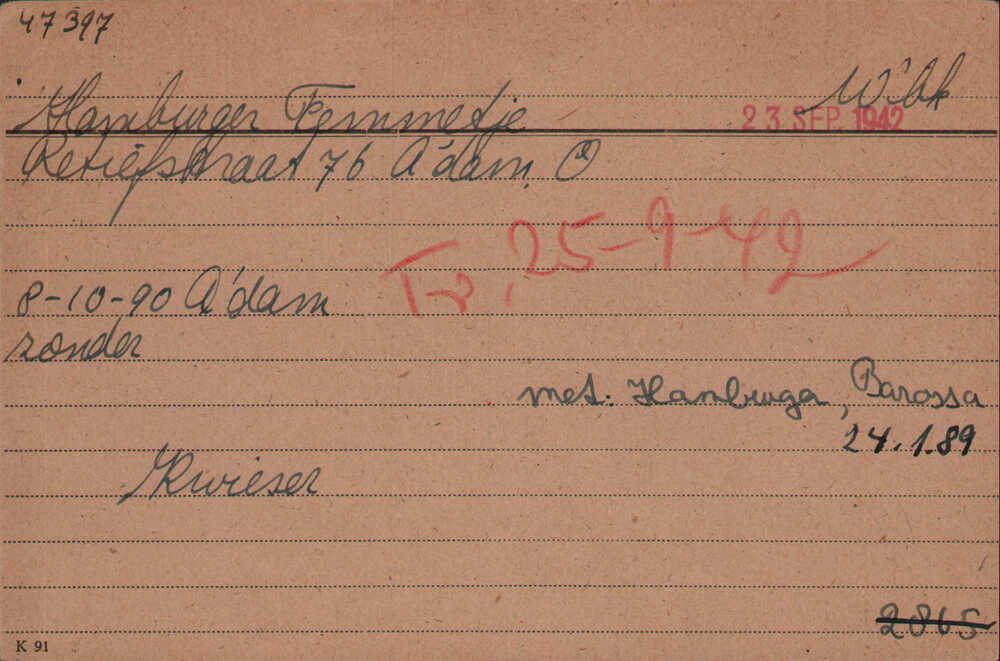 47397
Hamburger Femmetje W'bk
23 SEP. 1942
Retiefstraat 76 A'dam. O
Tr, 25-9-42
8-10-90 A'dam
zonder
met: Hamburger, Barossa
24.1.89
Kwieser
2865
K 91